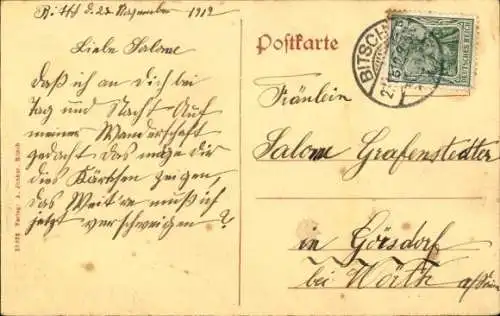 Bitsch d. 23 November 1912
Liebe Salome
Daß ich an Dich bei
Tag und Nacht Auf
meiner Wanderschaft
gedacht Das möge dir
dies Kärtchen zeigen,
das Weit're muß ich
jetzt verschweigen
Postkarte
BITSCH
DEUTSCHES REICH
Fräulein
Salome Grafenstedter
in Görsdorf
bei Wörth